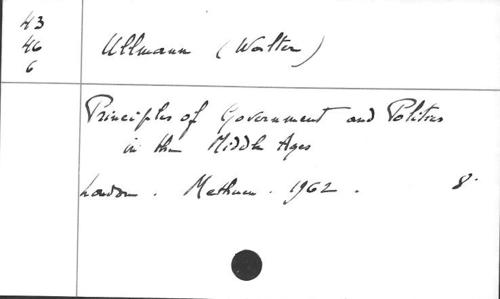 43
46
6
Ullmann (Walter)
Principles of Government and Politics
in the Middle Ages
London. Methuen. 1962. 8°